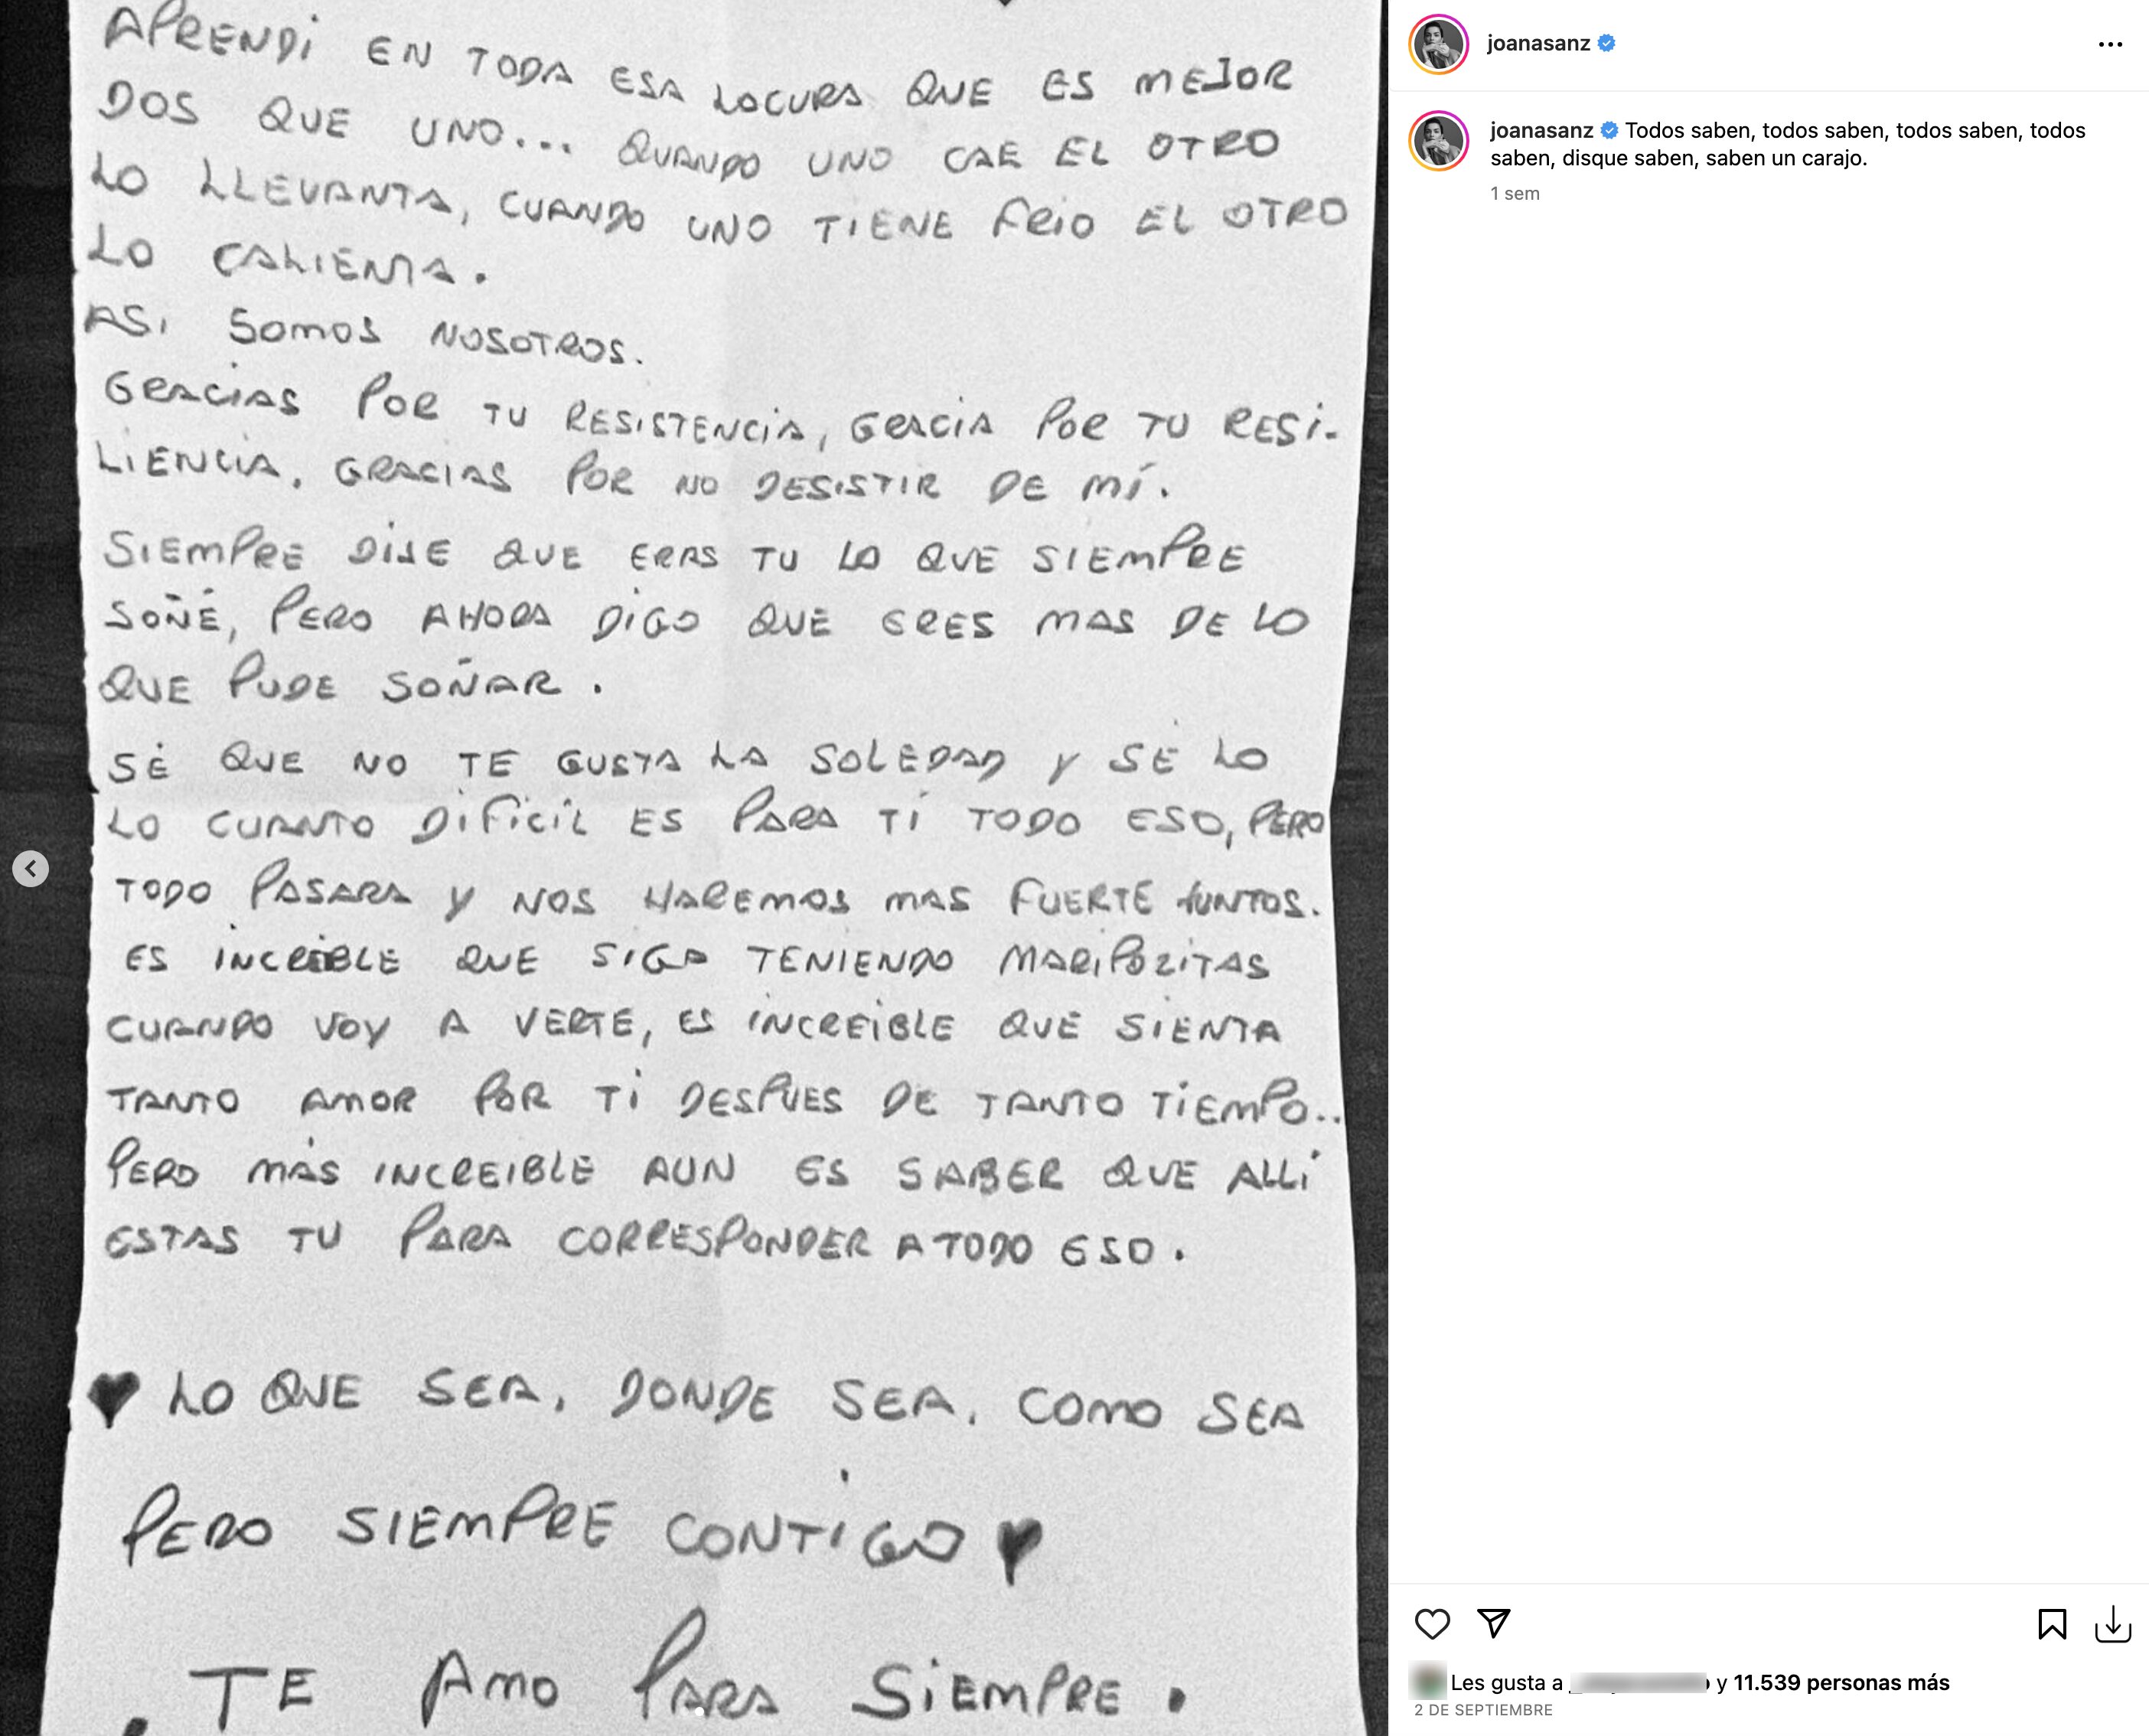 APRENDI EN TODA ESA LOCURA QUE ES MEJOR
DOS QUE UNO... QUANDO UNO CAE EL OTRO
LO LLEVANTA, CUANDO UNO TIENE FRIO EL OTRO
LO CALIENTA.
ASI SOMOS NOSOTROS.
GRACIAS POR TU RESISTENCIA, GRACIA POR TU RESI-
LIENCIA, GRACIAS POR NO DESISTIR DE MÍ.
SIEMPRE DIJE QUE ERAS TU LO QUE SIEMPRE
SOÑÉ, PERO AHORA DIGO QUE ERES MAS DE LO
QUE PUDE SOÑAR.
SÉ QUE NO TE GUSTA LA SOLEDAD Y SÉ LO
LO CUANTO DIFICIL ES PARA TÍ TODO ESO, PERO
TODO PASARA Y NOS HAREMOS MAS FUERTE JUNTOS.
ES INCREIBLE QUE SIGA TENIENDO MARIPOZITAS
CUANDO VOY A VERTE, ES INCREIBLE QUE SIENTA
TANTO AMOR POR TI DESPUES DE TANTO TIEMPO..
PERO MÁS INCREIBLE AUN ES SABER QUE ALLÍ
ESTAS TU PARA CORRESPONDER A TODO ESO.
♥ LO QUE SEA, DONDE SEA, COMO SEA
PERO SIEMPRE CONTIGO ♥
TE AMO PARA SIEMPRE.
joanasanz
joanasanz Todos saben, todos saben, todos saben, todos
saben, disque saben, saben un carajo.
1 sem
Les gusta a y 11.539 personas más
2 DE SEPTIEMBRE